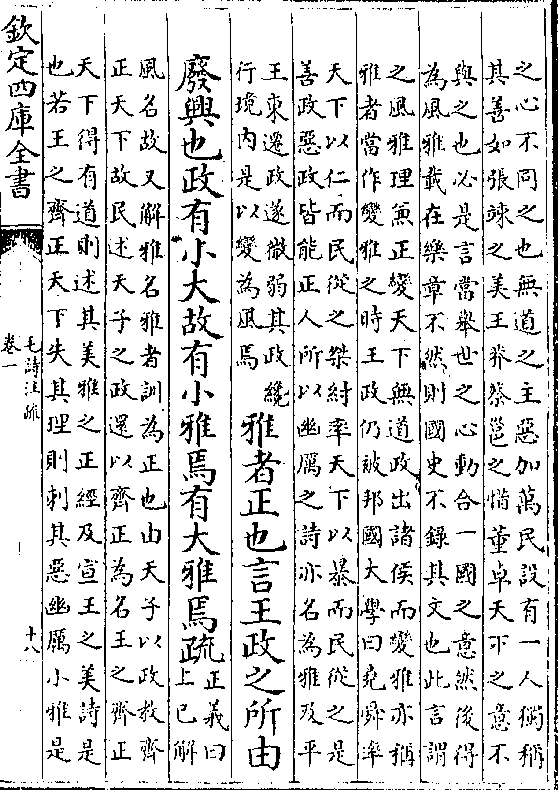 之心不同之也無道之主惡加萬民設有一人獨稱
其善如張竦之美王莽蔡邕之惜董卓天下之意不
與之也必是言當舉世之心動合一國之意然後得
為風雅載在樂章不然則國史不錄其文也此言謂
之風雅理兼正變天下無道政出諸侯而變雅亦稱
雅者當作變雅之時王政仍被邦國大學曰堯舜率
天下以仁而民從之桀紂率天下以暴而民從之是
善政惡政皆能正人所以幽厲之詩亦名為雅及平
王東遷政遂微弱其政纔
行境內是以變為風焉
雅者正也言王政之所由
廢興也政有小大故有小雅焉有大雅焉疏
正義曰
上已解
風名故又解雅名雅者訓為正也由天子以政教齊
正天下故民述天子之政還以齊正為名王之齊正
天下得有道則述其美雅之正經及宣王之美詩是
也若王之齊正天下失其理則刺其惡幽厲小雅是
欽定四庫全書
毛詩注疏
卷一
十八